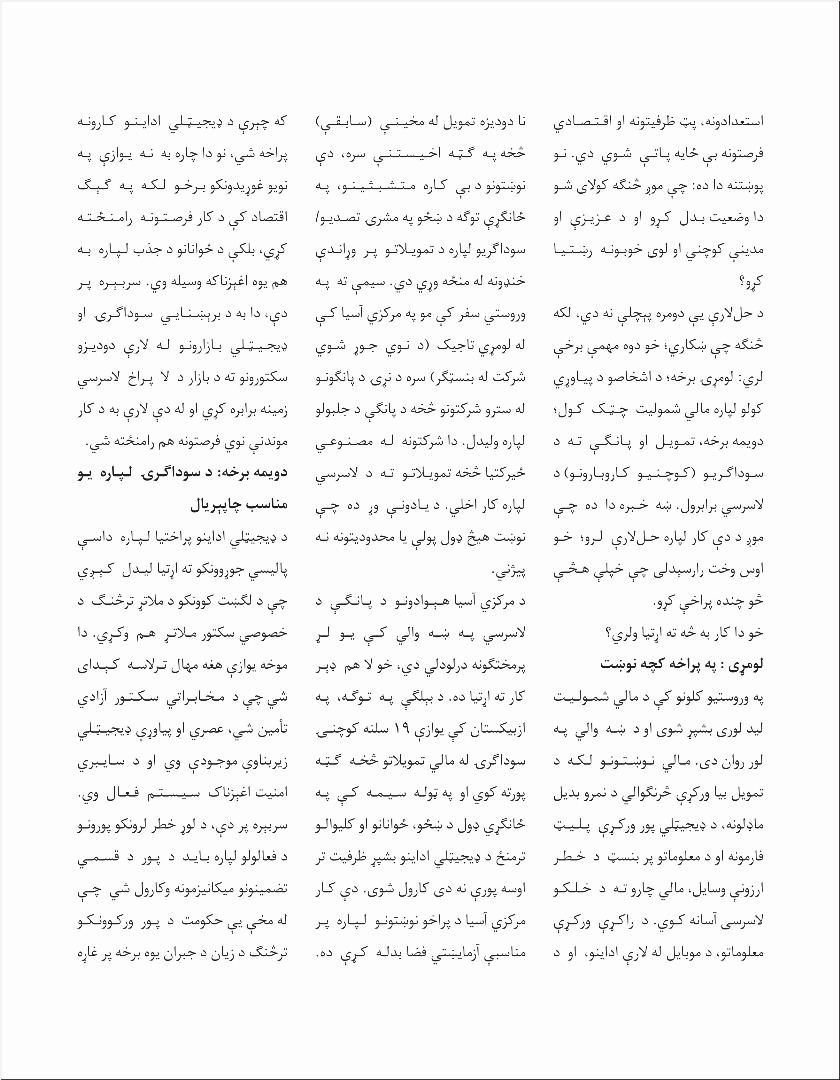 استعدادونه، پټ ظرفيتونه او اقتصادي
فرصتونه بې ځايه پاتې شوي دي. نو
پوښتنه دا ده: چې موږ څنګه کولای شو
دا وضعيت بدل کړو او د عزيزې او
مدينې کوچني او لوی خوبونه رښتيا
کړو؟
د حل‌لارې يې دومره پېچلې نه دي، لکه
څنګه چې ښکاري؛ خو دوه مهمې برخې
لري: لومړۍ برخه؛ د اشخاصو د پياوړي
کولو لپاره مالي شموليت چټک کول؛
دويمه برخه، تمويل او پانګې ته د
سوداګريو (کوچنيو کاروبارونو) د
لاسرسي برابرول. ښه خبره دا ده چې
موږ د دې کار لپاره حل‌لارې لرو؛ خو
اوس وخت رارسېدلی چې خپلې هڅې
څو چنده پراخې کړو.
خو دا کار به څه ته اړتيا ولري؟
لومړی : په پراخه کچه نوښت
په وروستيو کلونو کې د مالي شموليت
ليد لوری بشپړ شوی او د ښه والي په
لور روان دی. مالي نوښتونو لکه د
تمويل بيا ورکړې څرنګوالي د نمرو بديل
ماډلونه، د ډيجيټلي پور ورکړې پليټ
فارمونه او د معلوماتو پر بنسټ د خطر
ارزونې وسايل، مالي چارو ته د خلکو
لاسرسی آسانه کوي. د راکړې ورکړې
معلوماتو، د موبايل له لارې اداينو، او د
نا دوديزه تمويل له مخينې (سابقې)
څخه په ګټه اخيستنې سره، دې
نوښتونو د بې کاره متشبثينو، په
ځانګړې توګه د ښځو په مشرۍ تصديو/
سوداګريو لپاره د تمويلاتو پر وړاندې
خنډونه له منځه وړي دي. سيمې ته په
وروستي سفر کې مو په مرکزي آسيا کې
له لومړي تاجيک (د نوي جوړ شوي
شرکت له بنسټګر) سره د نړۍ د پانګونو
له سترو شرکتونو څخه د پانګې د جلبولو
لپاره وليدل. دا شرکتونه له مصنوعي
ځيرکتيا څخه تمويلاتو ته د لاسرسي
لپاره کار اخلي. د يادونې وړ ده چې
نوښت هيڅ ډول پولې يا محدوديتونه نه
پيژني.
د مرکزي آسيا هېوادونو د پانګې د
لاسرسي په ښه والي کې يو لړ
پرمختګونه درلودلي دي، خو لا هم ډېر
کار ته اړتيا ده. د بېلګې په توګه، په
ازبيکستان کې يوازې ۱۹ سلنه کوچنۍ
سوداګرۍ له مالي تمويلاتو څخه ګټه
پورته کوي او په ټوله سيمه کې په
ځانګړي ډول د ښځو، ځوانانو او کليوالو
ترمنځ د ډيجيټلي اداينو بشپړ ظرفيت تر
اوسه پورې نه دی کارول شوی. دې کار
مرکزي آسيا د پراخو نوښتونو لپاره پر
مناسبې آزماينښتي فضا بدله کړې ده.
که چېرې د ډيجيټلي اداينو کارونه
پراخه شي، نو دا چاره به نه يوازې په
نويو غوړيدونکو برخو لکه په ګېګ
اقتصاد کې د کار فرصتونه رامنځته
کړي، بلکې د ځوانانو د جذب لپاره به
هم يوه اغېزناکه وسيله وي. سربېره پر
دې، دا به د برېښنايي سوداګرۍ او
ډيجيټلي بازارونو له لارې دوديزو
سکتورونو ته د بازار د لا پراخ لاسرسي
زمينه برابره کړي او له دې لارې به د کار
موندنې نوي فرصتونه هم رامنځته شي.
دويمه برخه: د سوداګرۍ لپاره يو
مناسب چاپېريال
د ډيجيټلي اداينو پراختيا لپاره داسې
پاليسي جوړوونکو ته اړتيا ليدل کېږي
چې د لګښت کوونکو د ملاتړ ترڅنګ د
خصوصي سکتور ملاتړ هم وکړي. دا
موخه يوازې هغه مهال ترلاسه کېدای
شي چې د مخابراتي سکتور آزادي
تأمين شي، عصري او پياوړې ډيجيټلي
زيربناوې موجودې وي او د سايبري
امنيت اغېزناک سيستم فعال وي.
سربېره پر دې، د لوړ خطر لرونکو پورونو
د فعالولو لپاره بايد د پور د قسمي
تضمينونو ميکانيزمونه وکارول شي چې
له مخې يې حکومت د پور ورکوونکو
ترڅنګ د زيان د جبران يوه برخه پر غاړه